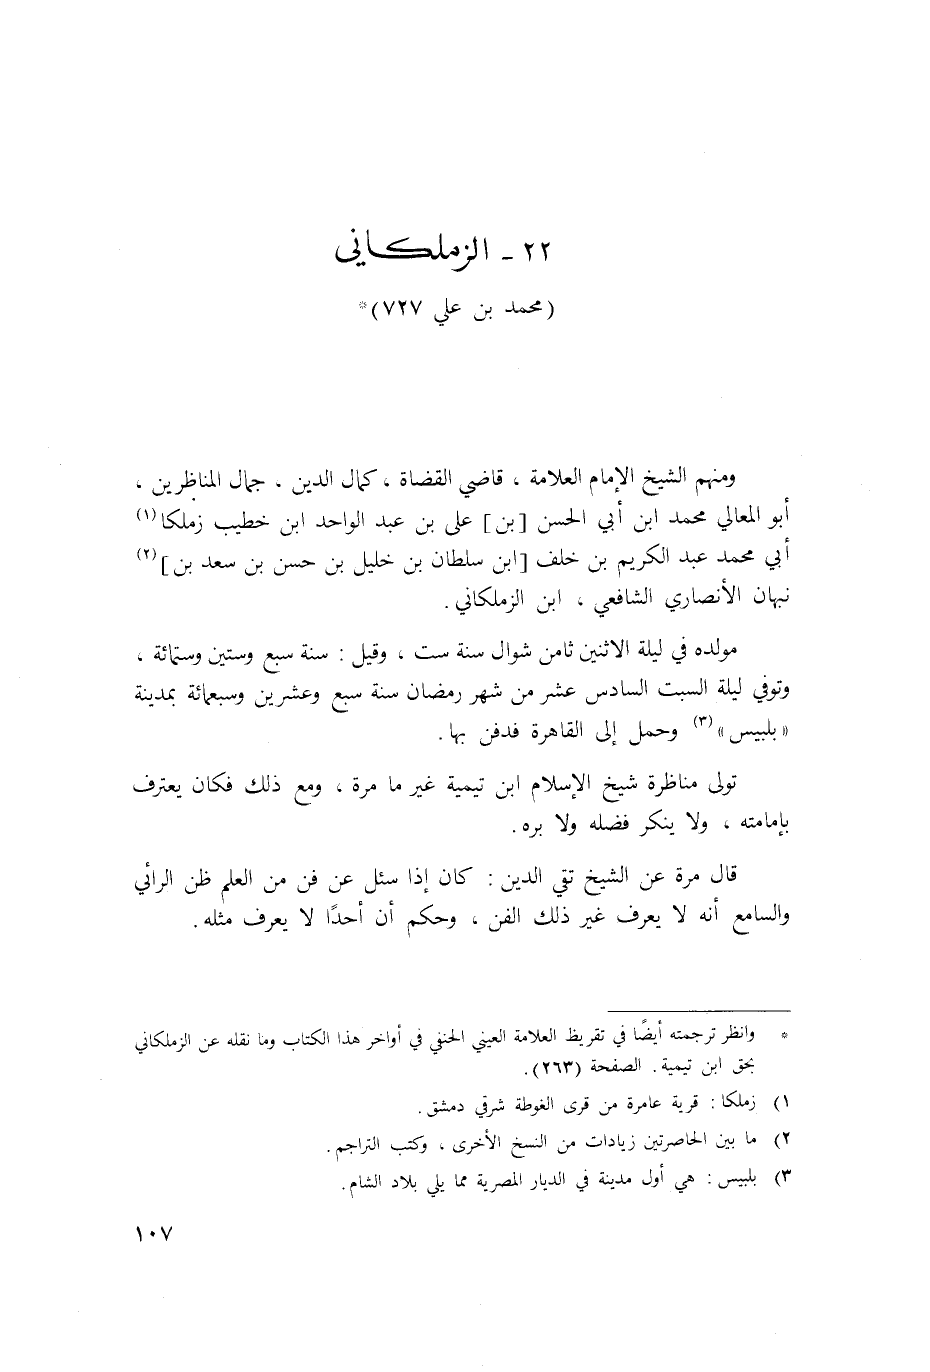 ٢٢ ـ الزملكاني
(محمد بن علي ٧٢٧)*
ومنهم الشيخ الإمام العلامة ، قاضي القضاة ، كمال الدين ، جمال المناظرين ،
أبو المعالي محمد ابن أبي الحسن [بن] على بن عبد الواحد ابن خطيب زملكا(١)
أبي محمد عبد الكريم بن خلف [ابن سلطان بن خليل بن حسن بن سعد بن](٢)
نبهان الأنصاري الشافعي ، ابن الزملكاني .
مولده في ليلة الاثنين ثامن شوال سنة ست ، وقيل : سنة سبع وستين وستمائة ،
وتوفي ليلة السبت السادس عشر من شهر رمضان سنة سبع وعشرين وسبعمائة بمدينة
«بلبيس»(٣) وحمل إلى القاهرة فدفن بها .
تولى مناظرة شيخ الإسلام ابن تيمية غير ما مرة ، ومع ذلك فكان يعترف
بإمامته ، ولا ينكر فضله ولا بره .
قال مرة عن الشيخ تقي الدين : كان إذا سئل عن فن من العلم ظن الرائي
والسامع أنه لا يعرف غير ذلك الفن ، وحكم أن أحدًا لا يعرف مثله .
* وانظر ترجمته أيضًا في تقريظ العلامة العيني الحنفي في أواخر هذا الكتاب وما نقله عن الزملكاني
بحق ابن تيمية . الصفحة (٢٦٣) .
١) زملكا : قرية عامرة من قرى الغوطة شرقي دمشق .
٢) ما بين الحاصرتين زيادات من النسخ الأخرى ، وكتب التراجم .
٣) بلبيس : هي أول مدينة في الديار المصرية مما يلي بلاد الشام .
١٠٧